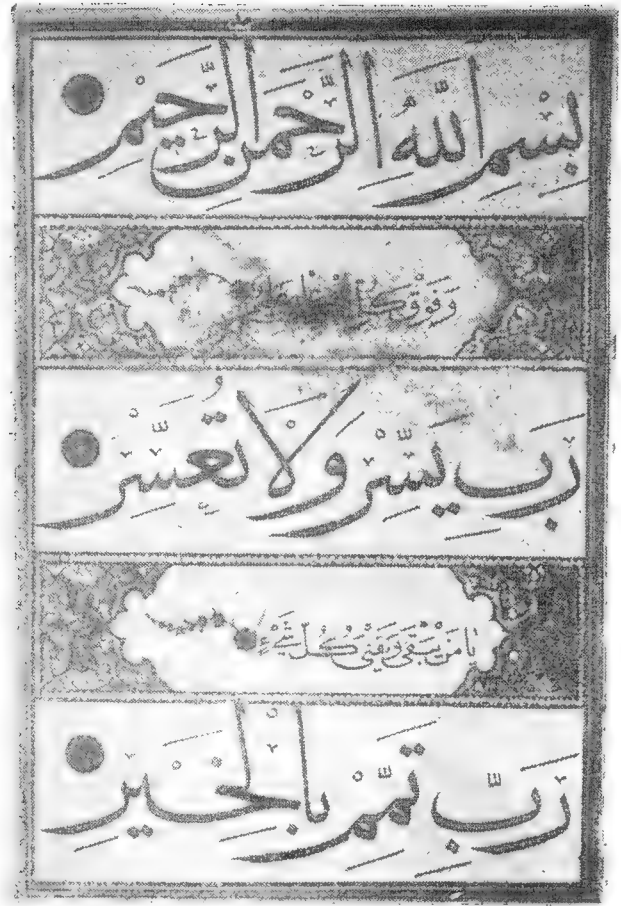 بِسْمِ اللّٰهِ الرَّحْمٰنِ الرَّحِيْمِ
وَفَوْقَ كُلِّ
رَبِّ يَسِّرْ وَلَا تُعَسِّرْ
يَا مَنْ يَبْقٰى وَيَفْنٰى كُلُّ شَيْءٍ
رَبِّ تَمِّمْ بِالْخَيْرِ